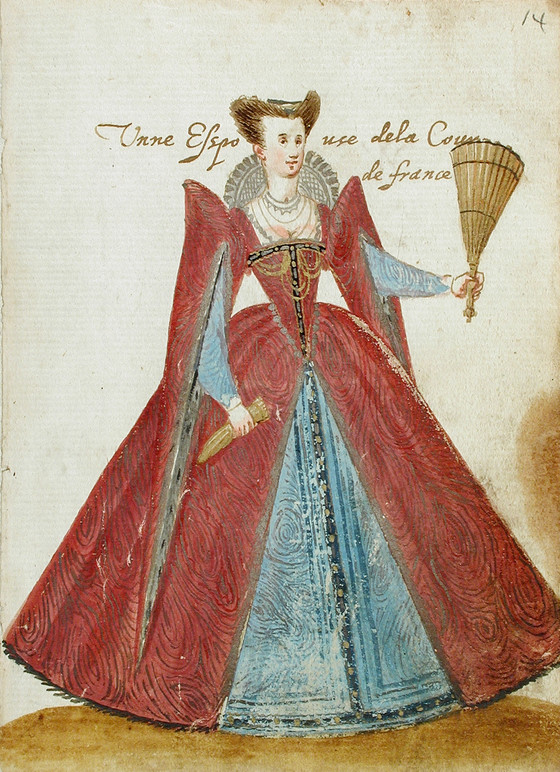 14
Unne Espouse dela Cour
de france